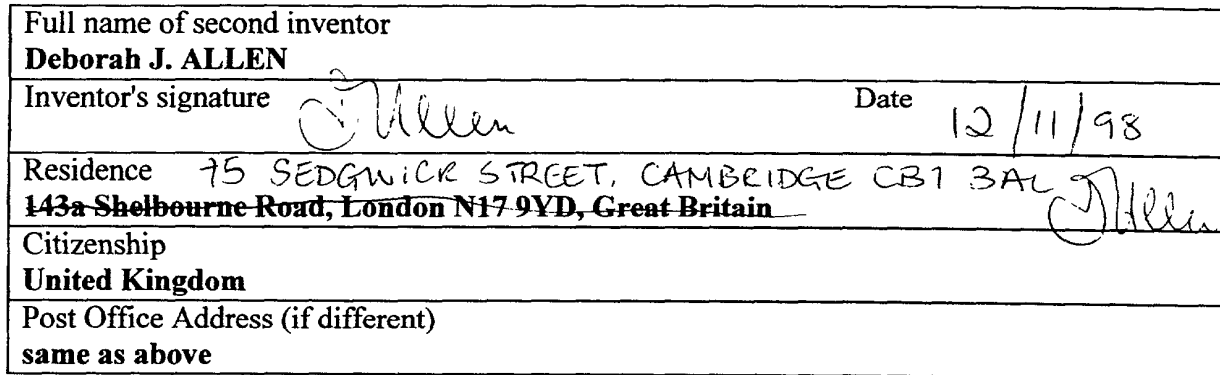 Full name of second inventor
Deborah J. ALLEN
Inventor's signature DJAllen Date 12/11/98
Residence 75 SEDGWICK STREET, CAMBRIDGE CB1 3AL
143a Shelbourne Road, London N17 9YD, Great Britain DJAllen
Citizenship
United Kingdom
Post Office Address (if different)
same as above